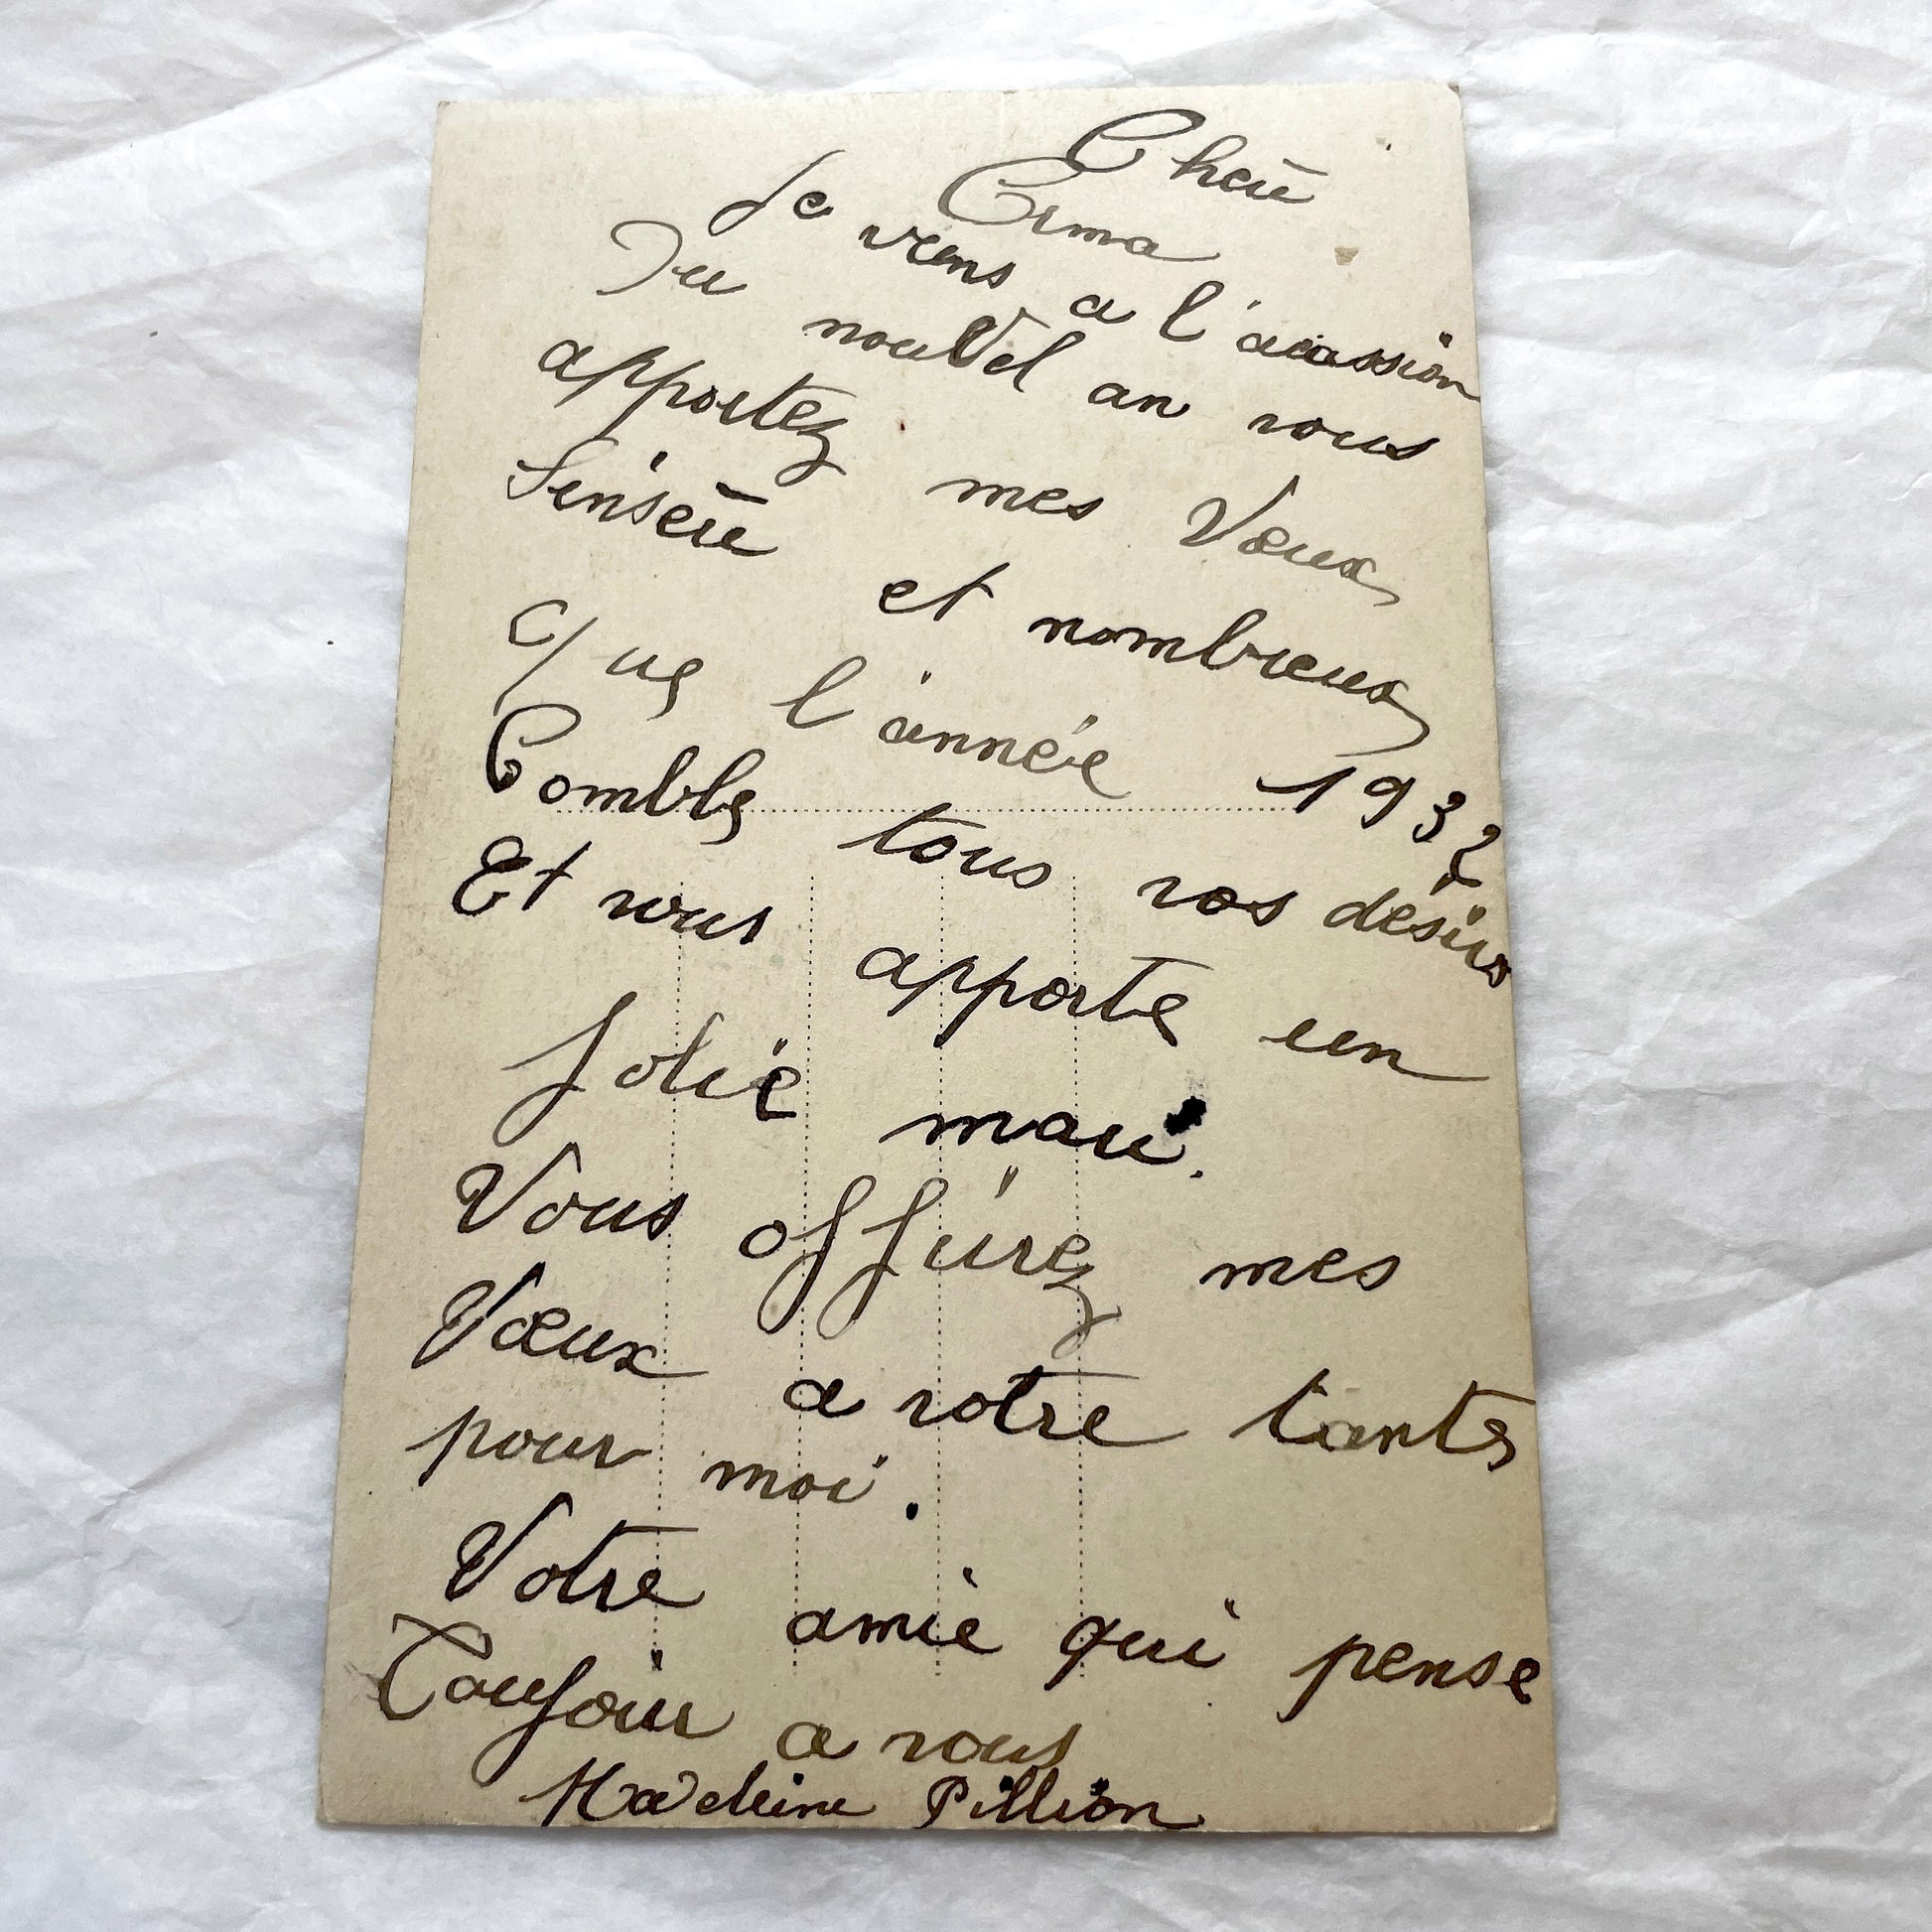 Cheře
Erma
Je viens a l'acassion
Du nouvel an vous
apportez mes Vœux
Sinsère et nombreux
que l'année 1932
Comble tous vos désirs
Et vous apporte un
Jolie mari.
Vous offrirez mes
Vœux a votre tante
pour moi.
Votre amie qui pense
Toujour a vous
Madeleine Pillion